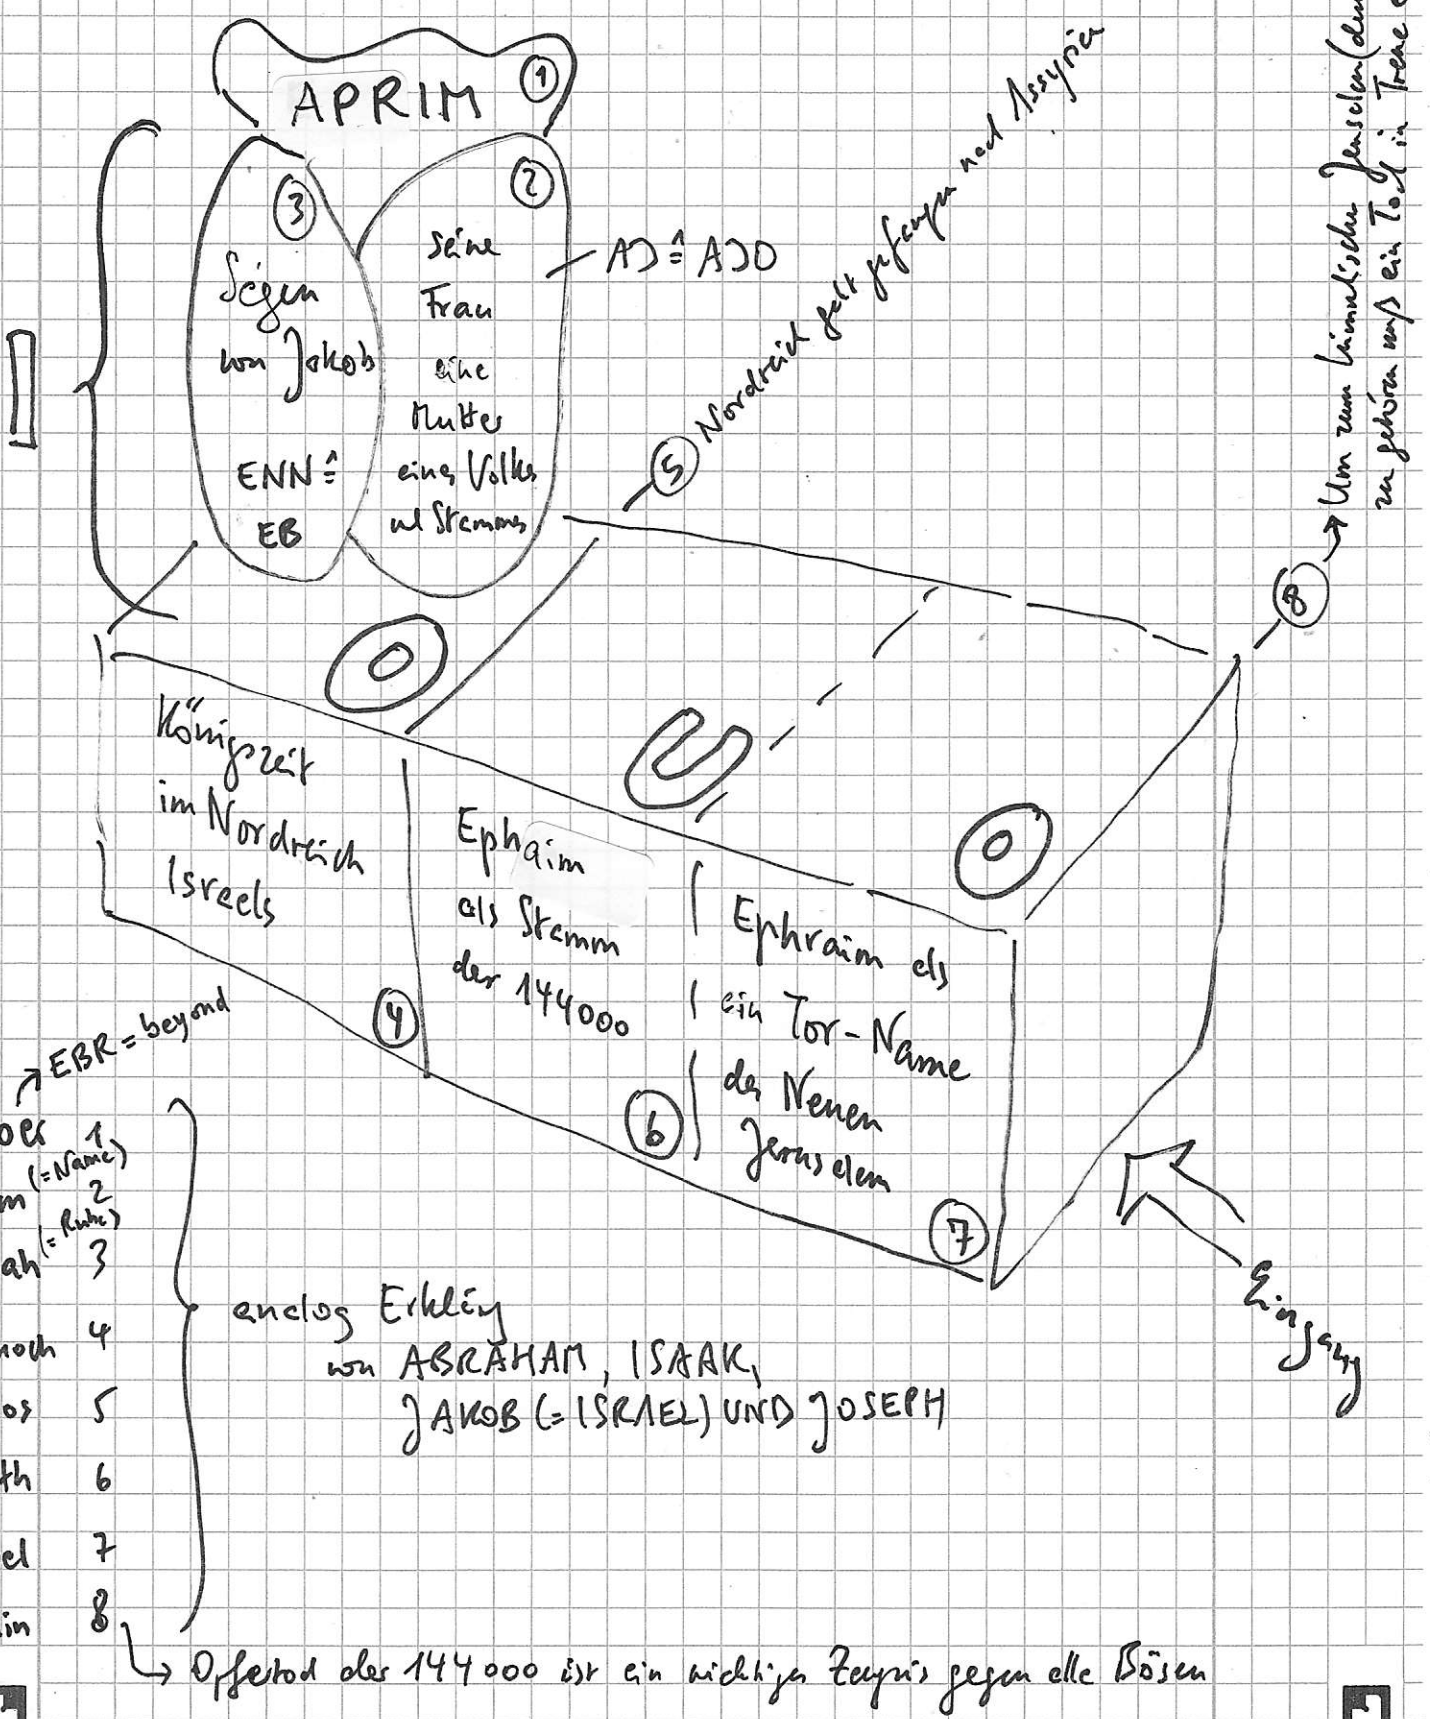 APRIM ①
③
Segen
von Jakob
ENN ≙
EB
②
seine
Frau
eine
Mutter
eines Volkes
und Stammes
AD ≙ ADD
⑤ Nordreich geht gefangen nach Assyrien
⑧ → Um zum himmlischen
zu gehören muß ein Tod in Treue
Königszeit
im Nordreich
Israels
④
Ephaim
als Stamm
der 144000
⑥
Ephraim als
ein Tor-Name
des Neuen
Jerusalem
⑦
Eingang
EBR = beyond
ber 1
m (=Name) 2
ah (=Ruhe) 3
noch 4
os 5
th 6
el 7
in 8
analog
von ABRAHAM, ISAAK,
JAKOB (=ISRAEL) UND JOSEPH
→ Opfertod der 144000 ist ein wichtiges Zeugnis gegen alle Bösen